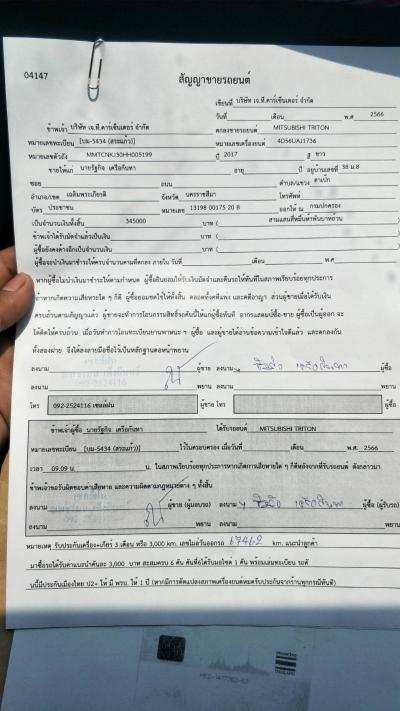 04147
สัญญาขายรถยนต์
เขียนที่ บริษัท เจ.ที.คาร์เซ็นเตอร์ จำกัด
วันที่ เดือน พ.ศ 2566
ข้าพเจ้า บริษัท เจ.ที.คาร์เซ็นเตอร์ จำกัด ตกลงขายรถยนต์ MITSUBISHI TRITON
หมายเลขทะเบียน [บม-5434 (สระแก้ว)] หมายเลขเครื่องยนต์ 4D56UAJ1736
หมายเลขตัวถัง MMTCNKJ30HH005199 ปี 2017 สี ขาว
ขายให้แก่ นายรัฐกิจ เครือกันหา อายุ ปี อยู่บ้านเลขที่ 38 ม.8
ซอย ถนน ตำบล/แขวง
อำเภอ/เขต เฉลิมพระเกียรติ จังหวัด นครราชสีมา โทรศัพท์
บัตร ประชาชน หมายเลข 13198 00175 20 8 ออกให้ ณ กรมปกครอง
เป็นจำนวนเงินทั้งสิ้น 345000 บาท ( สามแสนสี่หมื่นห้าพันบาทถ้วน
ข้าพเจ้าได้รับมัดจำแล้วเป็นเงิน บาท (
ผู้ซื้อยังคงค้างอีกเป็นจำนวนเงิน บาท (
ผู้ซื้อจะนำเงินมาชำระให้ครบจำนวนตามที่ตกลง ภายใน วันที่ เดือน พ.ศ.
หากผู้ซื้อไม่นำเงินมาชำระให้ตามกำหนด ผู้ซื้อยินยอมให้รับเงินมัดจำและคืนรถให้ทันทีในสภาพเรียบร้อยทุกประการ
ถ้าหากเกิดความเสียหายใด ๆ ก็ดี ผู้ซื้อยอมชดใช้ให้ทั้งสิ้น ตลอดทั้งคดีแพ่ง และคดีอาญา ส่วนผู้ขายเมื่อได้รับเงิน
ครบถ้วนตามสัญญาแล้ว ผู้ขายจะทำการโอนกรรมสิทธิ์รถคันนี้ให้แก่ผู้ซื้อทันที ผู้ซื้อเป็นผู้ออก จะ
ได้คิดให้ครบถ้วน เมื่อวันทำการโอนทะเบียนยานพาหนะ ฯ ผู้ซื้อ และผู้ขายได้อ่านข้อความเข้าใจดีแล้ว และตกลงกัน
ทั้งสองฝ่าย จึงได้ลงลายมือชื่อไว้เป็นหลักฐานต่อหน้าพยาน
ลงนาม ผู้ขาย ลงนาม ผู้ซื้อ
ลงนาม พยาน ลงนาม พยาน
โทร 092-2524116 เซลล์ฝน ผู้ขาย โทร ผู้ซื้อ
ข้าพเจ้าผู้ซื้อ นายรัฐกิจ เครือกันหา ได้รับรถยนต์ MITSUBISHI TRITON
หมายเลขทะเบียน [บม-5434 (สระแก้ว)] ไว้ในครอบครอง เมื่อวันที่ เดือน พ.ศ. 2566
เวลา 09.09 น. น. ในสภาพเรียบร้อยทุกประการหากเกิดการเสียหายใด ๆ ก็ดีหลังจากที่รับรถยนต์ ดังกล่าวมา
ข้าพเจ้าขอรับผิดชอบค่าเสียหาย และความผิดตามกฎหมายต่าง ๆ ทั้งสิ้น
ลงนาม ผู้ขาย (ผู้มอบรถ) ลงนาม ผู้ซื้อ (ผู้รับรถ)
ลงนาม พยาน ลงนาม พยาน
หมายเหตุ รับประกันเครื่อง+เกียร์ 3 เดือน หรือ 3,000 km. เลขไมล์วันออกรถ 67462 km. แนะนำลูกค้า
มาซื้อรถได้รับค่าแนะนำคันละ 3,000 บาท สะสมครบ 6 คัน คันที่6ได้รับมอไซค์ 1 คัน พร้อมเล่มทะเบียน รถคั
นนี้มีประกันเมืองไทย ป2+ ให้ มี พรบ. ให้ 1 ปี (หากมีการดัดแปลงสภาพเครื่องยนต์หมดรับประกันจากร้านทุกกรณีทันที)